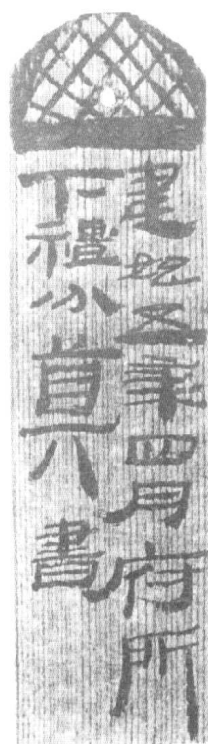 建始五年四月府所
下禮分算書